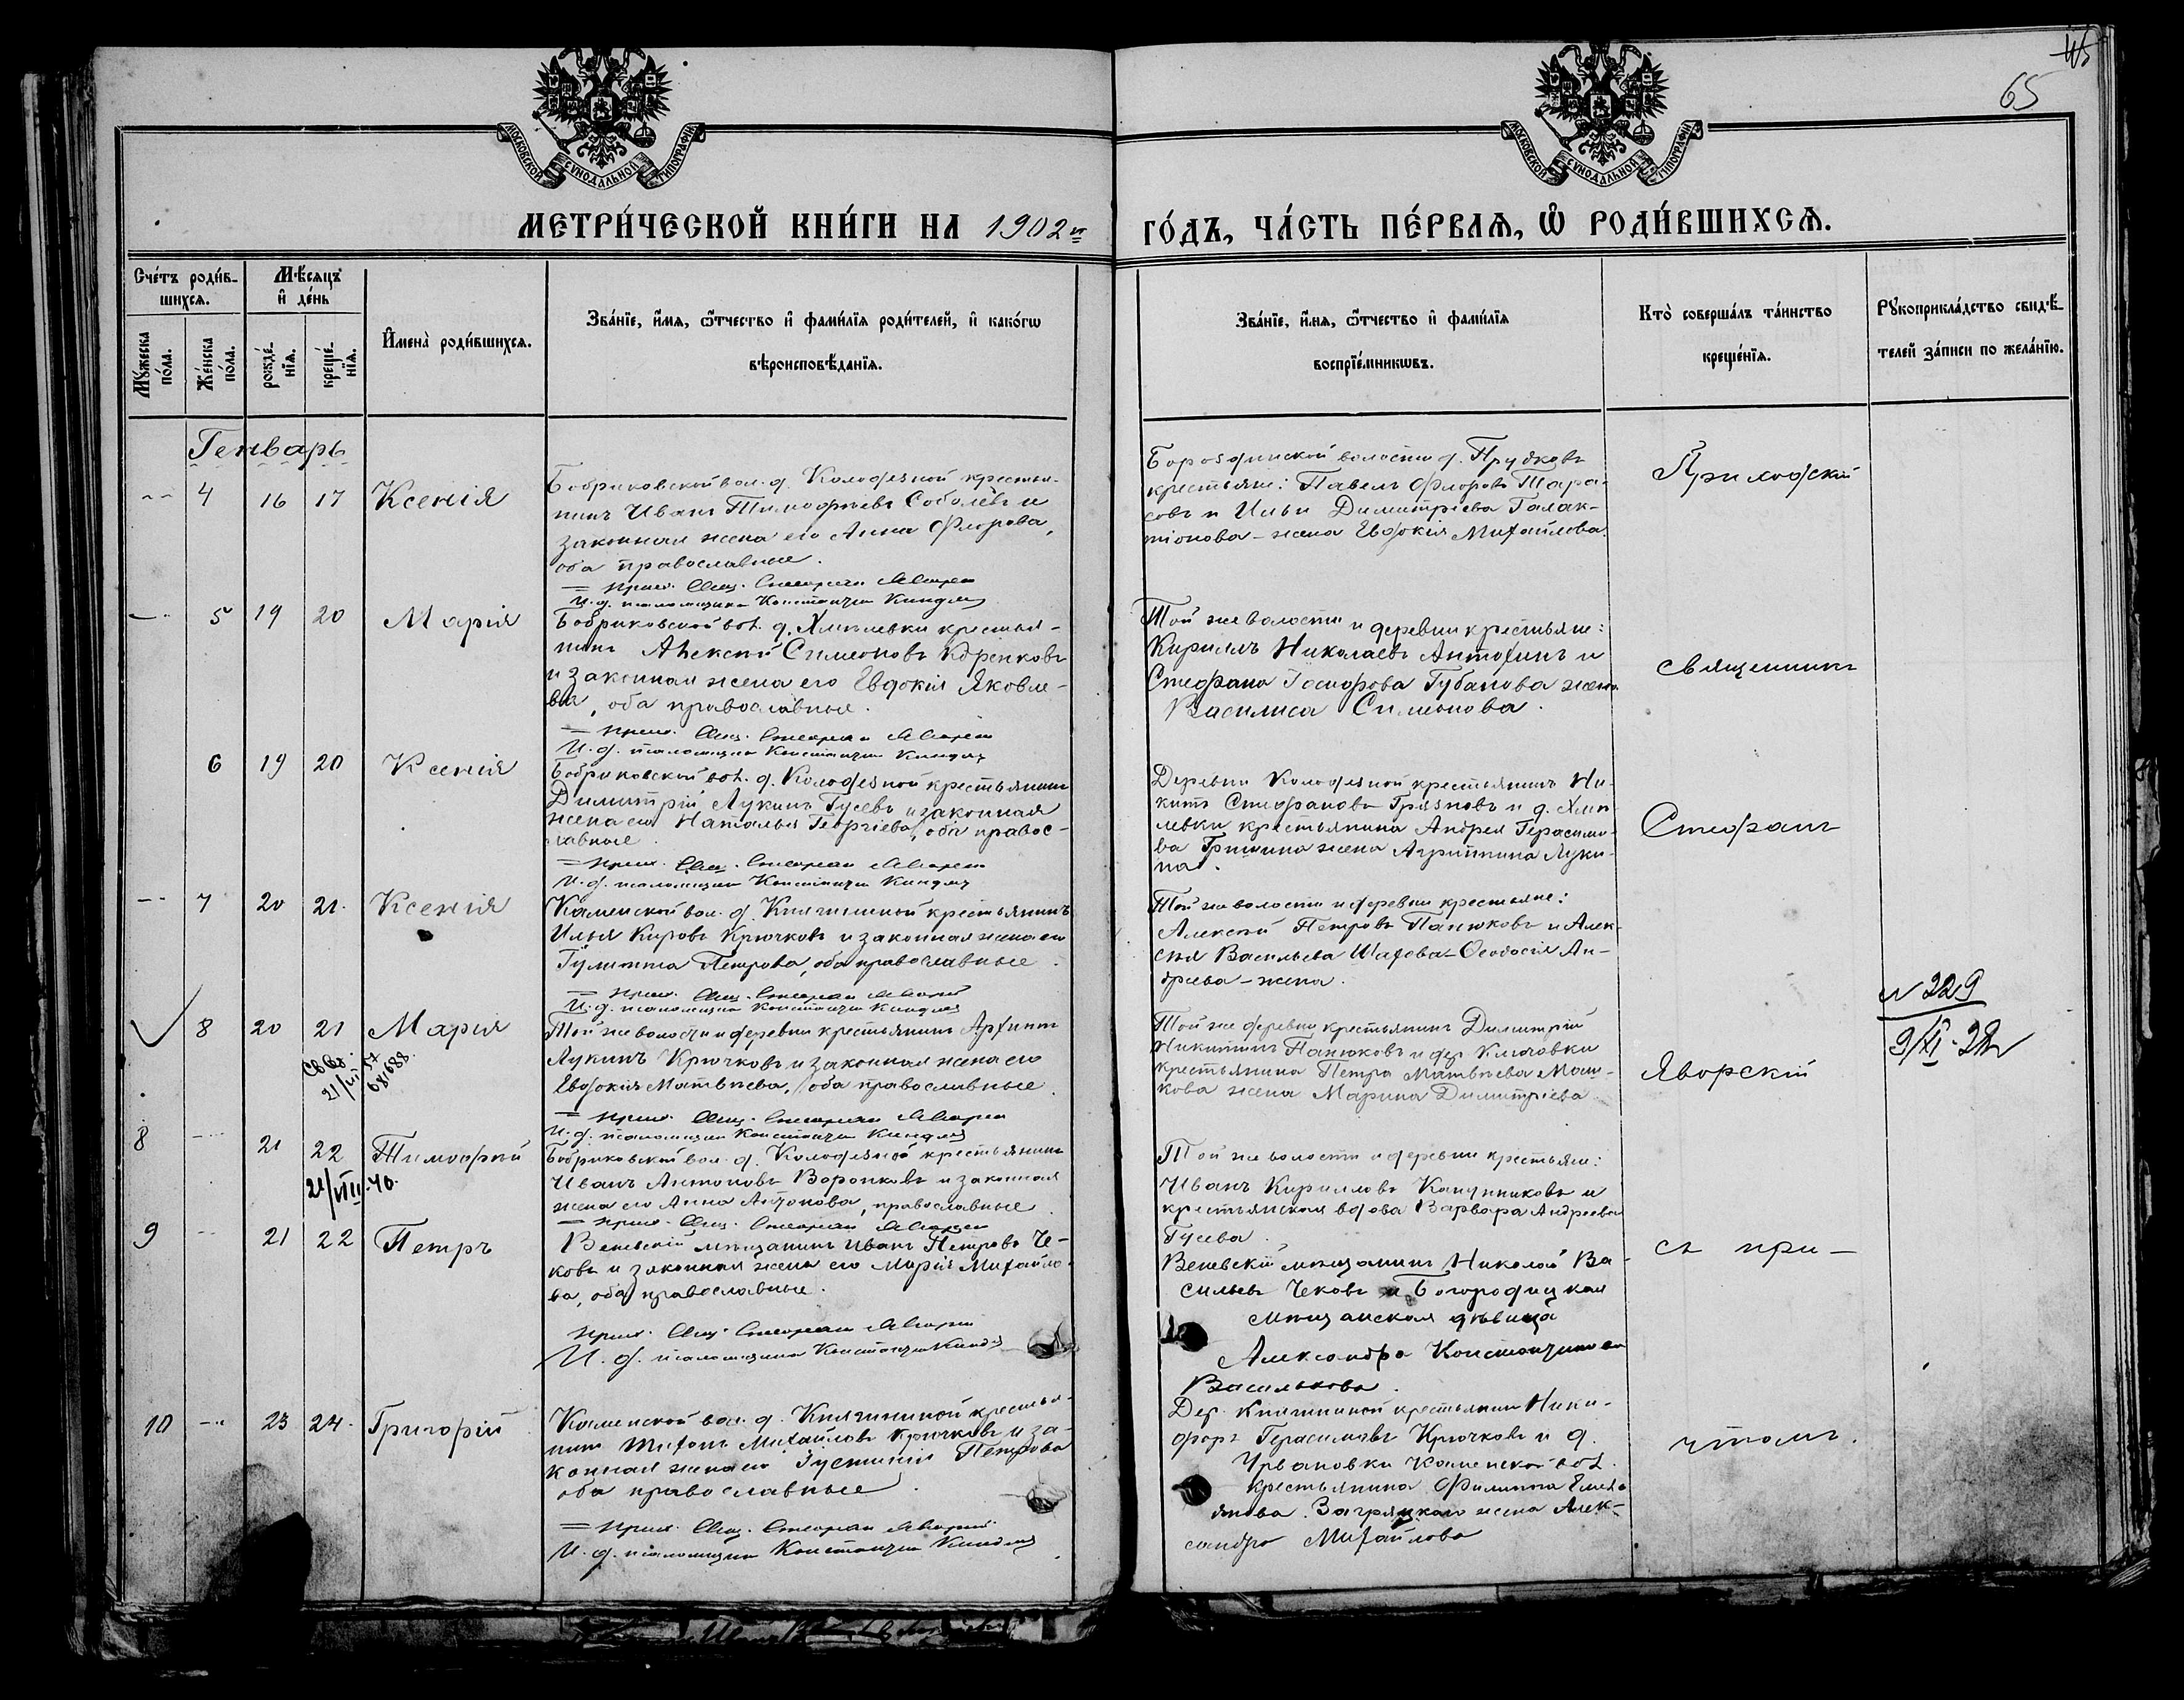 65
МОСКОВСКОЙ СУНОДАЛЬНОЙ ТИПОГРАФІИ
МОСКОВСКОЙ СУНОДАЛЬНОЙ ТИПОГРАФІИ
МЕТРИ́ЧЕСКОЙ КНИ́ГИ НА 1902й ГО́ДЪ, ЧА́СТЬ ПЕ́РВАѦ, Ѡ҆ РОДИ́ВШИХСѦ.
Сче́тъ роди́в-
шихсѧ.
Мꙋ́жеска по́ла.
Же́нска по́ла.
Мѣ́сяцъ
и҆ де́нь
рожде́-
нїѧ.
креще́-
нїѧ.
И҆мена̀ роди́вшихсѧ.
Зва́нїе, и҆́мѧ, ѻ҆́тчество и҆ фами́лїѧ роди́телей, и҆ како́гѡ
вѣроисповѣ́данїѧ.
Зва́нїе, и҆́мѧ, ѻ҆́тчество и҆ фами́лїѧ
воспрїе́мникѡвъ.
Кто̀ соверша́лъ та́инство
креще́нїѧ.
Рꙋкоприкла́дство свидѣ́-
телей за́писи по жела́нїю.
Генварь
4 16 17 Ксенія
Бобриковской вол. д. Колодезной крестья-
нинъ Иванъ Тимофѣевъ Соболевъ и
законная жена его Анна Флорова,
оба православные.
Прих. Свящ. Стефанъ Яворскій
И. д. псаломщика Константинъ
Бороздинской волости д. Прудковъ
крестьяне: Павелъ Флоровъ Тара-
совъ и Ильи Димитріева Галак-
тіонова - жена Евдокія Михайлова.
Приходскій
5 19 20 Марія
Бобриковской вол. д. Хмѣлевки крестья-
нинъ Алексѣй Симеоновъ Коренковъ
и законная жена его Евдокія Яковле-
ва, оба православные.
Прих. Свящ. Стефанъ Яворскій
И. д. псаломщика Константинъ
Той же волости и деревни крестьяне:
Кириллъ Николаевъ Антохинъ и
Стефана Губанова жена
Василиса Симеонова.
священникъ
6 19 20 Ксенія
Бобриковской вол. д. Колодезной крестьянинъ
Димитрій Лукинъ Гусевъ и законная
жена его Наталья Георгіева, оба правос-
лавные.
Прих. Свящ. Стефанъ Яворскій
И. д. псаломщика Константинъ
Деревни Колодезной крестьянинъ Ни-
кита Стефановъ Грязновъ и д. Хмѣ-
левки крестьянина Андрея Герасимо-
ва Гришина жена Агриппина Луки-
на.
Стефанъ
7 20 21. Ксенія
Каменской вол. д. Княгининой крестьянинъ
Илья Кировъ Крючковъ и законная жена его
Іулитта Петрова, оба православные.
Прих. Свящ. Стефанъ Яворскій
И. д. псаломщика Константинъ
Той же волости и деревни крестьяне:
Алексѣй Петровъ Панюковъ и Алек-
сѣя Васильева - Ѳеодосія Ан-
дреева - жена.
8 20 21 Марія
Той же волости и деревни крестьянинъ
Лукинъ Крючковъ и законная жена его
Евдокія Матвѣева, оба православные.
Прих. Свящ. Стефанъ Яворскій
И. д. псаломщика Константинъ
Той же деревни крестьянинъ Димитрій
Никитинъ Панюковъ и дер. Ключовки
крестьянина Петра Матвѣева Маш-
кова жена Марина Димитріева.
Яворскій
N 229
8 21 22 Тимоѳей
21/VIII-46.
Бобриковской вол. д. Колодезной крестьянинъ
Иванъ Антоновъ Воронковъ и законная
жена его Анна Антонова, православные.
Прих. Свящ. Стефанъ Яворскій
Той же волости и деревни крестьяне:
Иванъ Кирилловъ и
крестьянская вдова Варвара Андреева
Гусева.
9 21 22 Петръ
Веневскій мѣщанинъ Иванъ Петровъ Че-
ковъ и законная жена его Марія Михайло-
ва, оба православные.
Прих. Свящ. Стефанъ Яворскій
И. д. псаломщика Константинъ
Веневскій мѣщанинъ Николай Ва-
сильевъ Чековъ и Богородицкая
мѣщанская дѣвица
Александра Константинова
Василькова.
съ при-
10 23 24. Григорій
Каменской вол. д. Княгининой крестья-
нинъ Тихонъ Михайловъ Крючковъ и за-
конная жена его Іустинія Петрова
оба православные.
Прих. Свящ. Стефанъ Яворскій
И. д. псаломщика Константинъ
Дер. Княгининой крестьянинъ Ники-
форъ Герасимовъ Крючковъ и д.
Урвановки Каменской вол.
крестьянина Филиппа Емель-
янова жена Алек-
сандра Михайлова
чтомъ.